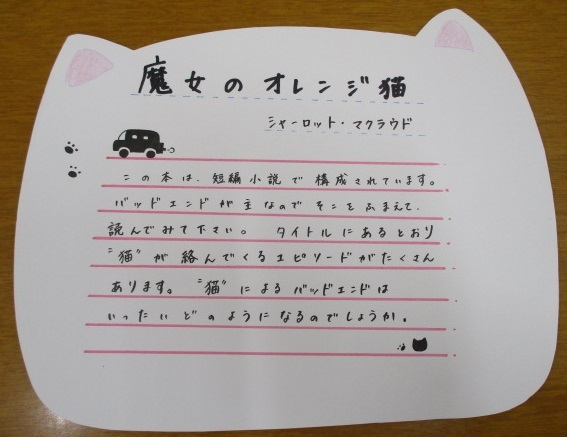 魔女のオレンジ猫
シャーロット・マクラウド
この本は、短編小説で構成されています。
バッドエンドが主なのでそこをふまえて、
読んでみて下さい。 タイトルにあるとおり
"猫"が絡んでくるエピソードがたくさん
あります。 "猫"によるバッドエンドは
いったいどのようになるのでしょうか。